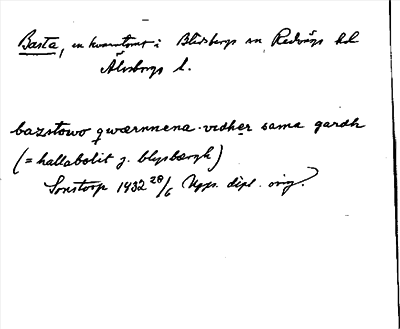 Basta, en kvarntomt i Blidsbergs sn, Redvägs hd
Älvsborgs l.
bazstowo qwærnnena vidher sama gardh
(= hallabolit j. blysbærgh)
Sonstorp 1482 28/6 Upps. dipl. orig.